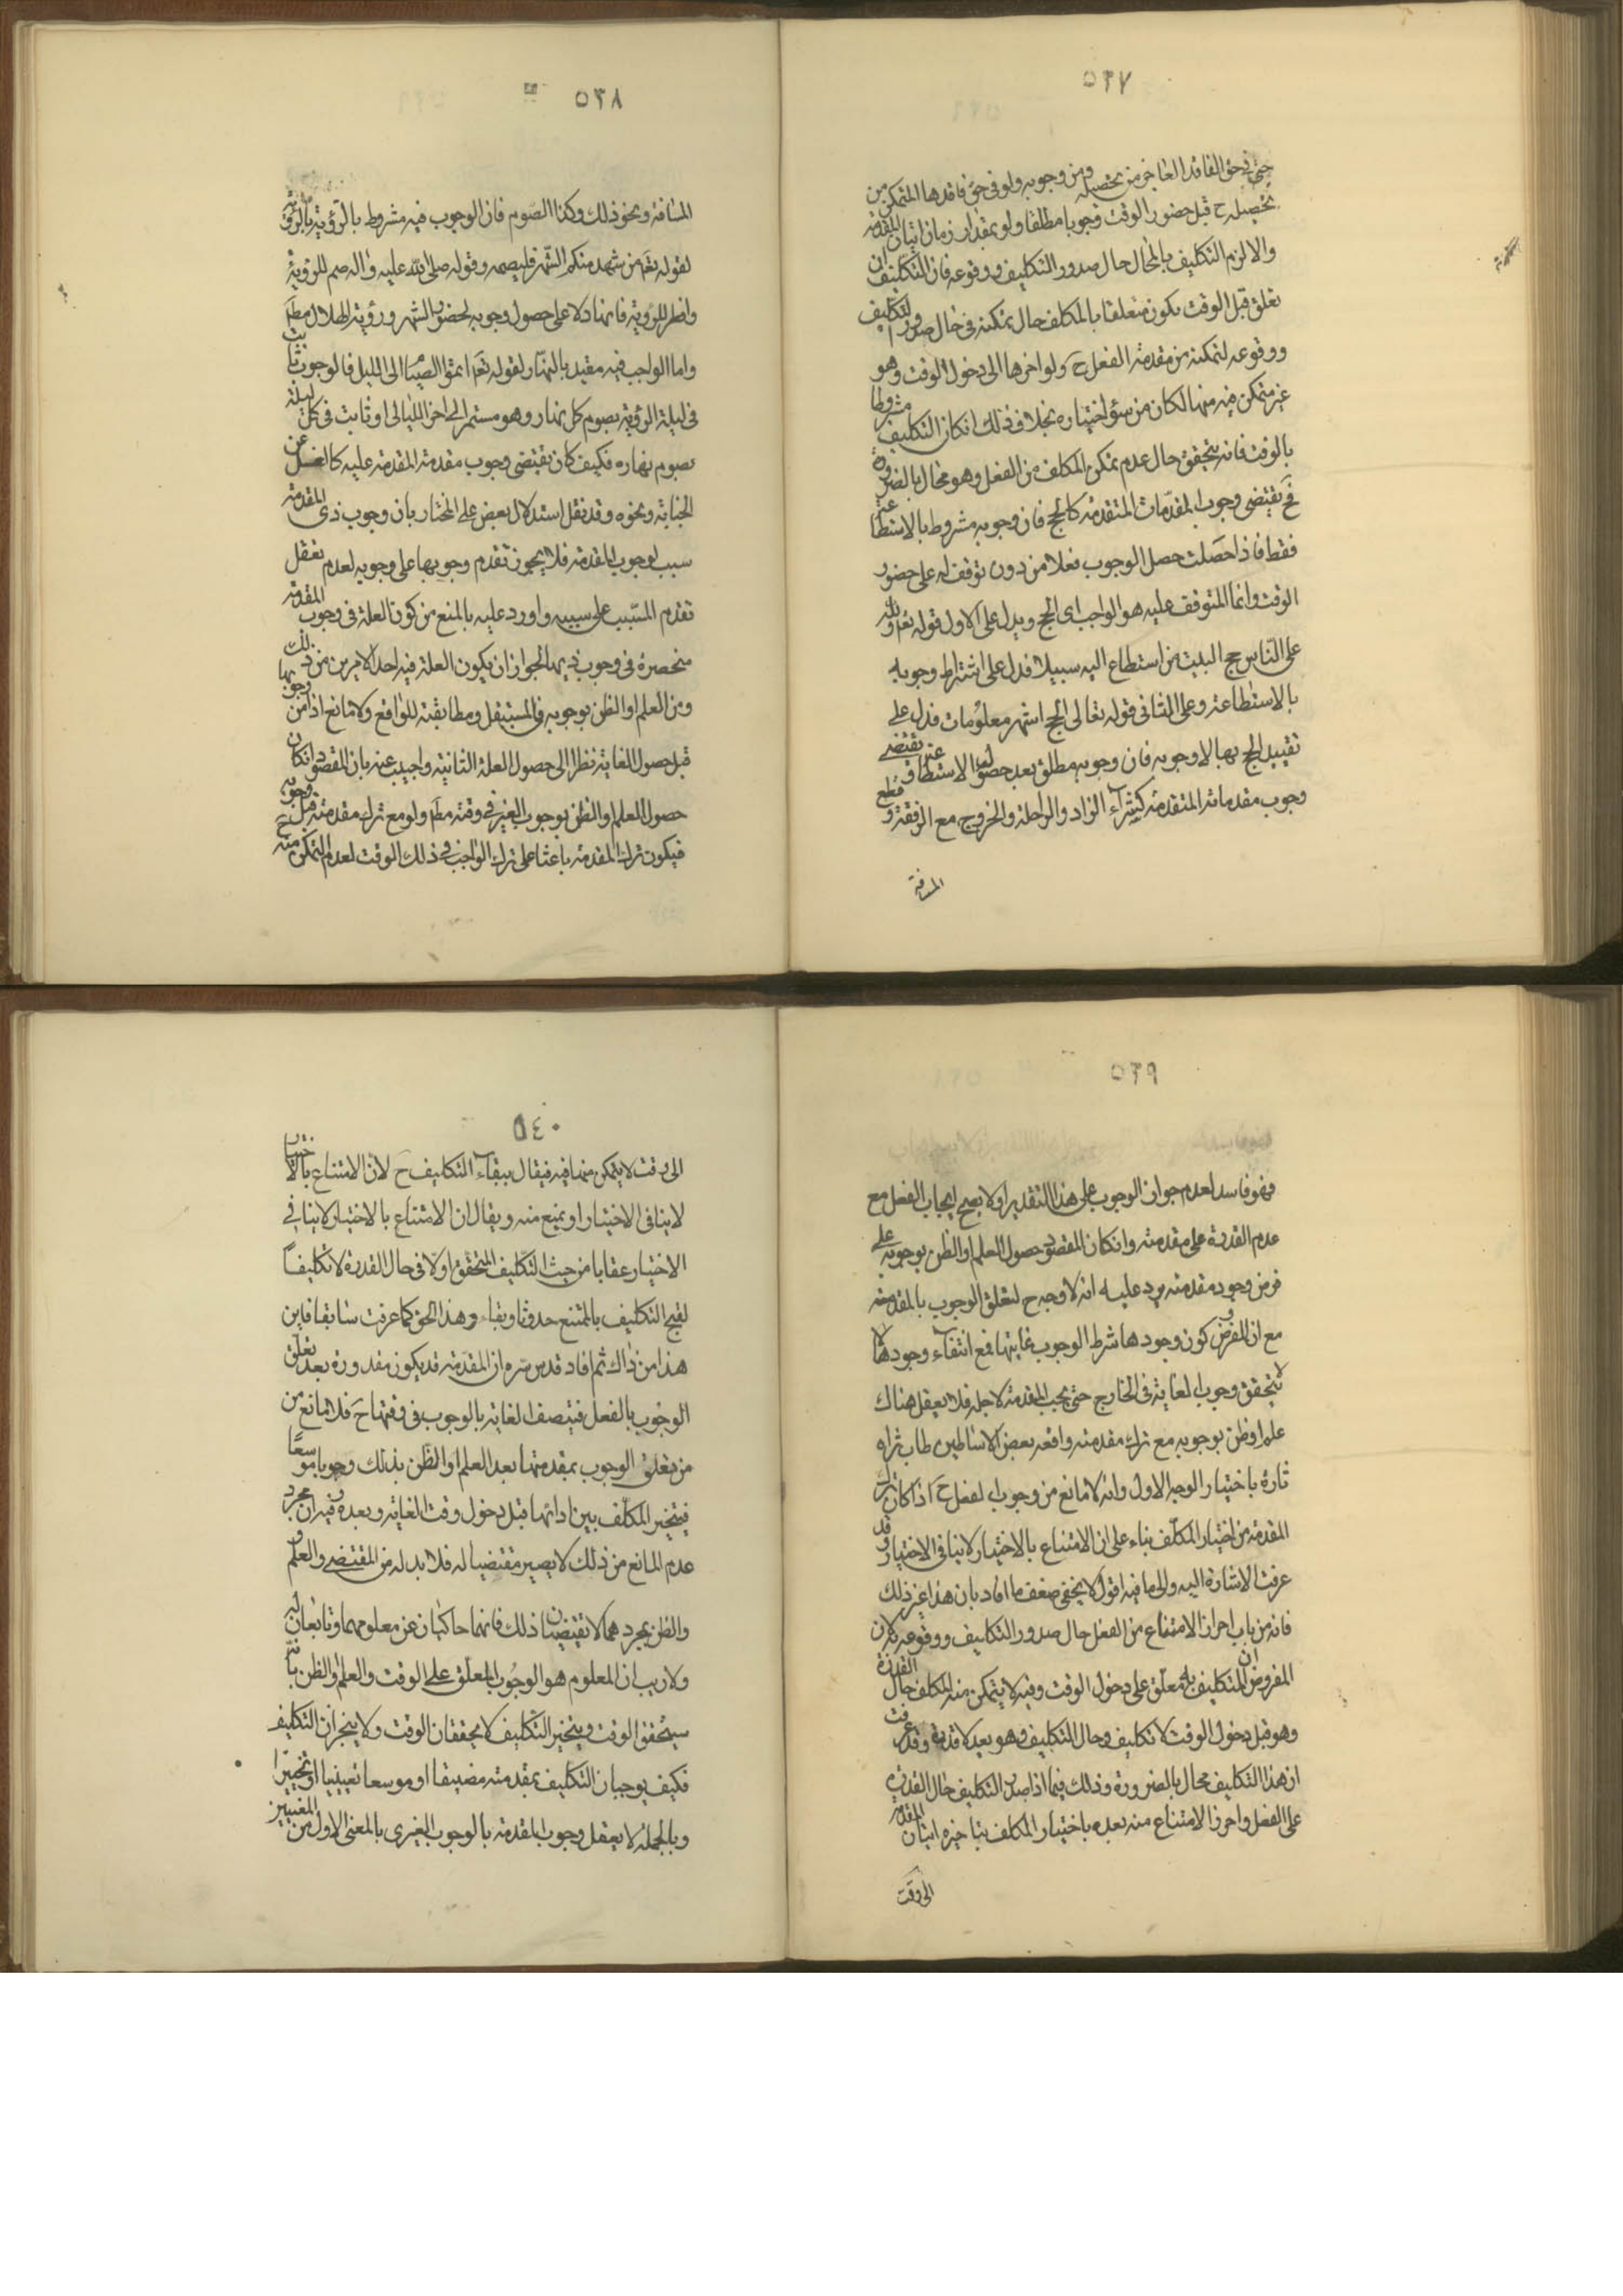 ٥٣٧
حتى فى حق الفاقد العاجز من تحصيله ومن وجوبه ولو فى حق فاقدها المتمكن من
تحصيله ح قبل حضور الوقت وجوبا مطلقا ولو بمقدار زمان اتيان المقدمة
والا لزم التكليف بالمحال حال صدور التكليف ووقوعه فان التكليف ان
تعلق قبل الوقت يكون متعلقا بالمكلف حال تمكنه فى حال صدور التكليف
ووقوعه لتمكنه من مقدمة الفعل ح ولو اخرها الى دخول الوقت وهو
غير متمكن فيه منها لكان من سوء اختياره بخلاف ذلك ان كان التكليف مشروطا
بالوقت فانه يتحقق حال عدم تمكن المكلف من الفعل وهو محال بالضرورة
فح يقتضى وجوب المقدمات المتقدمة كالحج فان وجوبه مشروط بالاستطاعة
فقط فاذا حصلت حصل الوجوب فعلا من دون توقف له على حضور
الوقت وانما المتوقف عليه هو الواجب اى الحج ويدل على الاول قوله تعم ولله
على الناس حج البيت من استطاع اليه سبيلا فدل على اشتراط وجوبه
بالاستطاعة وعلى الثانى قوله تعالى الحج اشهر معلومات فدل على
تقييد الحج بها لا وجوبه فان وجوبه مطلق بعد حصول الاستطاعة فيقتضى
وجوب مقدماته المتقدمة كشراء الزاد والراحلة والخروج مع الرفقة وقطع
المسافة
٥٣٨
المسافة ونحو ذلك وكذا الصوم فان الوجوب فيه مشروط بالرؤية
لقوله تعم من شهد منكم الشهر فليصمه وقوله صلى الله عليه واله صم للرؤية
وافطر للرؤية فانهما دلا على حصول وجوبه بحضور الشهر ورؤية الهلال مطم
واما الواجب فيه مقيد بالنهار لقوله تعم اتموا الصيام الى الليل فالوجوب ثابت
فى ليلة الرؤية بصوم كل نهار وهو مستمر الى اخر الليالى او ثابت فى كل ليلة
بصوم نهاره فكيف كان يقتضى وجوب مقدمته المقدمة عليه كالغسل عن
الجنابة ونحوه وقد نقل استدلال بعض على المختار بان وجوب ذى المقدمة
سبب لوجوب المقدمة فلا يجوز تقدم وجوبها على وجوبه لعدم تعقل
تقدم المسبب على سببه واورد عليه بالمنع من كون العلة فى وجوب المقدمة
منحصرة فى وجوب ذيها لجواز ان يكون العلة فيه احد الامرين من ذلك
ومن العلم او الظن بوجوبه فى المستقبل ومطابقته للواقع ولا مانع اذا من وجوبها
قبل حصول الغاية نظرا الى حصول العلة الثانية واجيب عنه بان المقصود ان كان
حصول العلم او الظن بوجوب الغير فى وقته مطم ولو مع ترك مقدمته قبل وجوبه
فيكون ترك المقدمة باعثا على ترك الواجب فى ذلك الوقت لعدم التمكن منه ح
٥٣٩
فهو فاسد لعدم جواز الوجوب على هذا التقدير اولا يصح ايجاب الفعل مع
عدم القدرة على مقدمته وان كان المقصود حصول العلم او الظن بوجوبه على
فرض وجود مقدمته يرد عليه انه لا وجه ح لتعلق الوجوب بالمقدمة
مع ان المفروض كون وجودها شرط الوجوب غايتها فمع انتفاء وجودها لا
يتحقق وجوب لغاية فى الخارج حتى يجب المقدمة لاجله فلا يعقل هناك
علم او ظن بوجوبه مع ترك مقدمته وافعه بعض الاساطين طاب ثراه
تارة باختيار الوجه الاول وانه لا مانع من وجوب الفعل ح اذا كان ترك
المقدمة من اختيار المكلف بناء على ان الامتناع بالاختيار لا ينافى الاختيار وقد
عرفت الاشارة اليه والى ما فيه اقول لا يخفى ضعف ما افاد بان هذا غير ذلك
فانه من باب احراز الامتناع من الفعل حال صدور التكليف ووقوعه لان
المفروض ان التكليف به معلق على دخول الوقت وفيه لا يتمكن منه المكلف حال القدرة
وهو قبل دخول الوقت لا تكليف وحال التكليف وهو بعد لا قدرة وقد عرفت
ان هذا التكليف محال بالضرورة وذلك فيما اذا صدر التكليف حال القدرة
على الفعل واحرز الامتناع منه بعده باختيار المكلف بتاخيره اتيان المقدمة
الى وقت
٥٤٠
الى وقت لا يتمكن منها فيه فيقال ببقاء التكليف ح لان الامتناع بالاختيار
لا ينافى الاختيار او يمنع منه ويقال ان الامتناع بالاختيار لا ينافى
الاختيار عقابا من حيث التكليف المتحقق اولا فى حال القدرة لا تكليفا
لقبح التكليف بالممتنع حدوثا وبقاء وهذا الحق كما عرفت سابقا فاين
هذا من ذاك ثم افاد قدس سره ان المقدمة قد يكون مقدورة بعد تعلق
الوجوب بالفعل فيتصف الغاية بالوجوب فى وقتها ح فلا مانع من
من تعلق الوجوب بمقدمتها بعد العلم او الظن بذلك وجوبا موسعا
فيتخير المكلف بين ادائها قبل دخول وقت الغاية وبعده وفيه ان مجرد
عدم المانع من ذلك لا يصير مقتضيا له فلا بد له من المقتضى والعلم
والظن بمجردهما لا تقتضيان ذلك فانهما حاكيان عن معلومهما وتابعان له
ولا ريب ان المعلوم هو الوجوب المعلق على الوقت والعلم والظن بانه
سيتحقق الوقت ويتخير التكليف لا يحققان الوقت ولا ينجزان التكليف
فكيف يوجبان التكليف بمقدمته مضيقا او موسعا تعيينيا او تخييرا
وبالجملة لا يعقل وجوب المقدمة بالوجوب الغيرى بالمعنى الاول من المعنيين